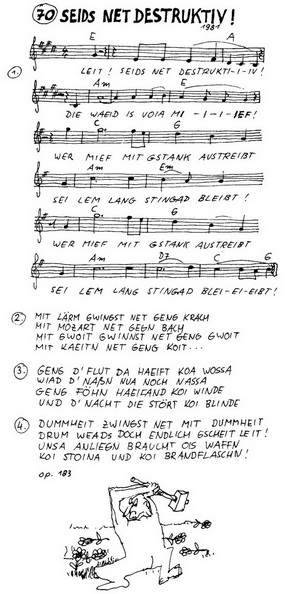 70 SEIDS NET DESTRUKTIV!
1981
E A
1. LEIT! SEIDS NET DESTRUKTI-I-IV!
Am E
DIE WAEID IS VOIA MI-I-I-IEF!
C G
WER MIEF MIT GSTANK AUSTREIBT
Am Em
SEI LEM LANG STINGAD BLEIBT!
C G
WER MIEF MIT GSTANK AUSTREIBT
Am D7 C G
SEI LEM LANG STINGAD BLEI-EI-EIBT!
2. MIT LÄRM GWINGST NET GENG KRACH
MIT MOZART NET GEGN BACH
MIT GWOIT GWINNST NET GENG GWOIT
MIT KAEITN NET GENG KOIT...
3. GENG D'FLUT DA HAEIFT KOA WOSSA
WIAD D'NAßN NUA NOCH NASSA
GENG FÖHN HAEIFAND KOI WINDE
UND D'NACHT DIE STÖRT KOI BLINDE
4. DUMMHEIT ZWINGST NET MIT DUMMHEIT
DRUM WEADS DOCH ENDLICH GSCHEIT LEIT!
UNSA ANLIEGN BRAUCHT OIS WAFFN
KOI STOINA UND KOI BRANDFLASCHN!
op. 183